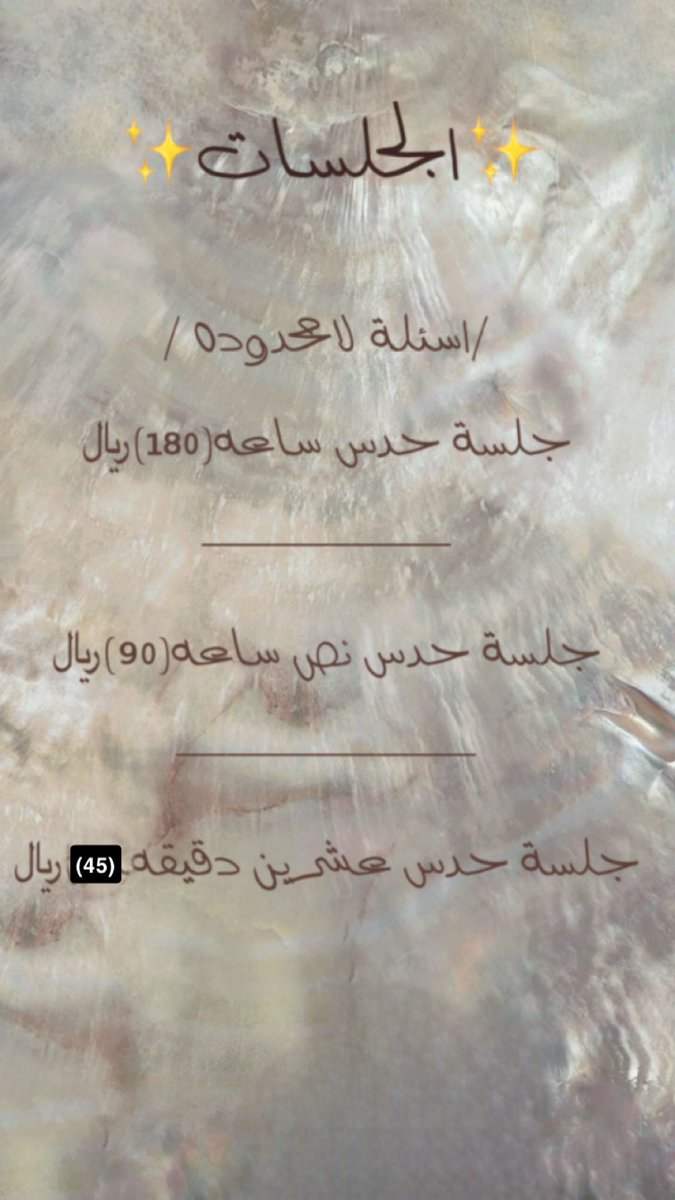 ✨الجلسات✨
/اسئلة لامحدوده /
جلسة حدس ساعه(180)ريال
جلسة حدس نص ساعه(90)ريال
جلسة حدس عشرين دقيقه (45) ريال